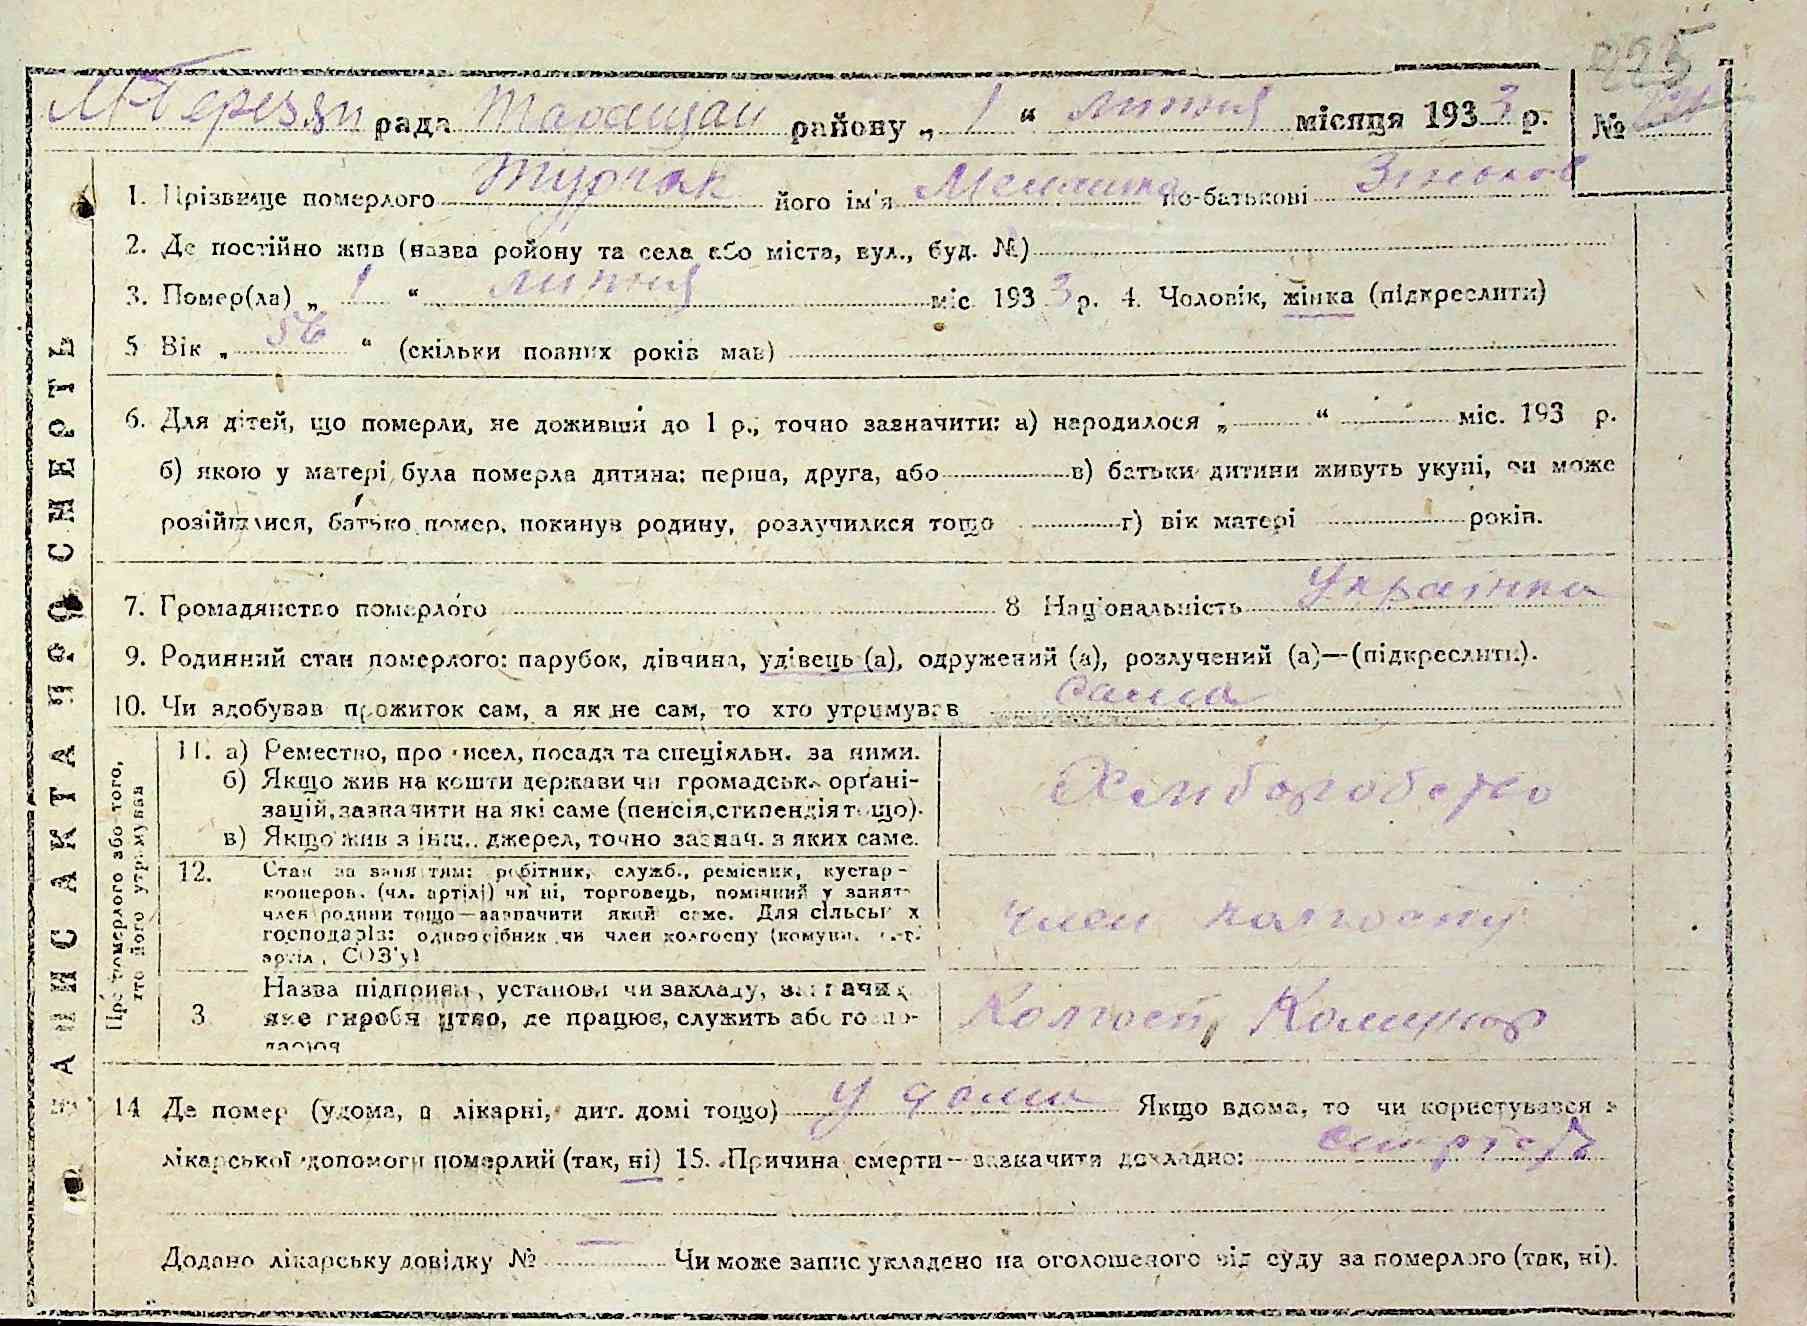 225
М-Березян рада Таращан району „ 1 “ липня місяця 1933 р. №
1. Прізвище померлого Турчак його ім'я по-батькові Зіньков
2. Де постійно жив (назва ройону та села або міста, вул., буд. №)
3. Помер(ла) „ 1 “ липня міс. 1933 р. 4. Чоловік, жінка (підкреслити)
5 Вік „ 56 “ (скільки повних років мав)
6. Для дітей, що померли, не доживши до 1 р., точно зазначити: а) народилося „ “ міс. 193 р.
б) якою у матері була померла дитина: перша, друга, або в) батьки дитини живуть укупі, чи може
розійшлися, батько помер, покинув родину, розлучилися тощо г) вік матері років.
7. Громадянство померлого 8 Національність Українка
9. Родинний стан померлого: парубок, дівчина, удівець (а), одружений (а), розлучений (а)—(підкреслити).
10. Чи здобував прожиток сам, а як не сам, то хто утримував сама
Про померлого або того, хто його утримував
11. а) Ремество, промисел, посада та спеціяльн. за ними.
б) Якщо жив на кошти держави чи громадськ. орґані-
зацій, зазначити на які саме (пенсія, стипендія тощо).
в) Якщо жив з інш. джерел, точно зазнач. з яких саме.
Хліборобство
12. Стан за заняттям: робітник, служб., ремісник, кустар-
кооперов. (чл. артілі) чи ні, торговець, помічний у занят.
член родини тощо—зазначити який саме. Для сільськ х
господарів: одноосібник чи член колгоспу (комуни,
артіл, СОЗ'у)
член колгоспу
3 Назва підприєм, установи чи закладу, зазначи
яке виробництво, де працює, служить або госпо-
дарює
Колгосп, Комінтер
14 Де помер (удома, в лікарні, дит. домі тощо) у дома Якщо вдома, то чи користувався з
лікарської допомоги померлий (так, ні) 15. Причина смерти—зазначити докладно: старість
Додано лікарську довідку № — Чи може запис укладено на оголошеного від суду за померлого (так, ні).
ЗАПИС АКТА ПРО СМЕРТЬ